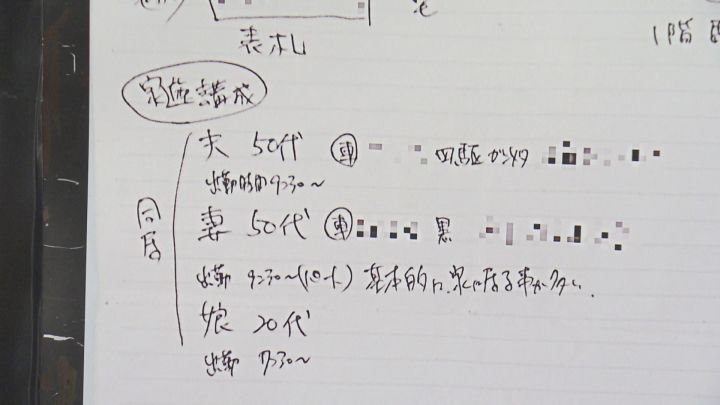 表札
1階
家族構成
夫 50代 車 四駆
出勤時間 9:30〜
同居
妻 50代 車 黒
出勤 9:30〜 基本的に家に居る事が多い、
娘 20代
出勤 7:30〜